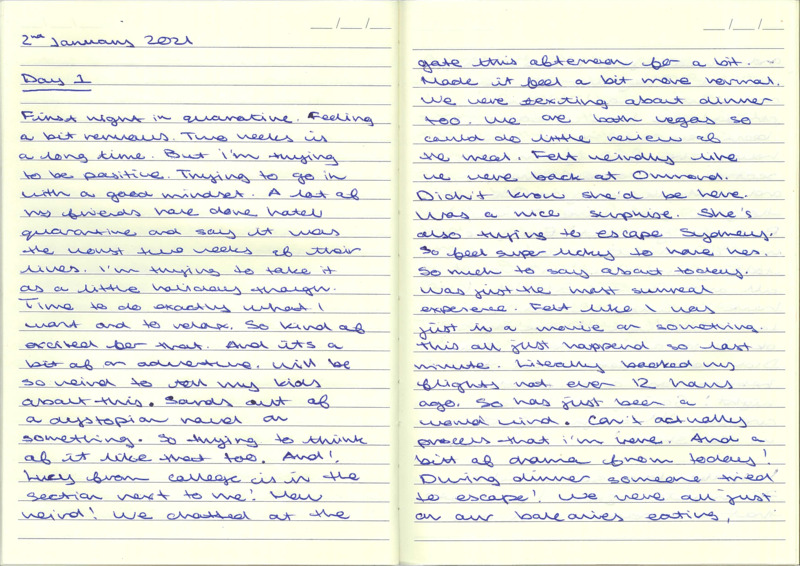 2nd January 2021
Day 1
First night in quarantine. Feeling
a bit nervous. Two weeks is
a long time. But i'm trying
to be positive. Trying to go in
with a good mindset. A lot of
my friends have done hotel
quarantine and say it was
the worst two weeks of their
lives. i'm trying to take it
as a little holiday though.
Time to do exactly what I
want and to relax. So kind of
excited for that. And it's a
bit of an adventure. will be
so weird to tell my kids
about this. Sounds out of
a dystopian novel or
something. So trying to think
of it like that too. And!
Lucy from college is in the
section next to me! How
weird! We chatted at the
gate this afternoon for a bit.
Made it feel a bit more normal.
We were texting about dinner
too. We are both vegos so
could do little review of
the meal. Felt weirdly like
we were back at Ormond.
Didn't know she'd be here.
Was a nice surprise. She's
also trying to escape Sydney.
So feel super lucky to have her.
So much to say about today.
Was just the most surreal
experience. Felt like I was
just in a movie or something.
this all just happend so last
minute. Literally booked my
flights not even 12 hours
ago. So has just been a
world wind. Can't actually
process that i'm here. And a
bit of drama from today!
During dinner someone tried
to escape! We were all just
on our balconies eating,